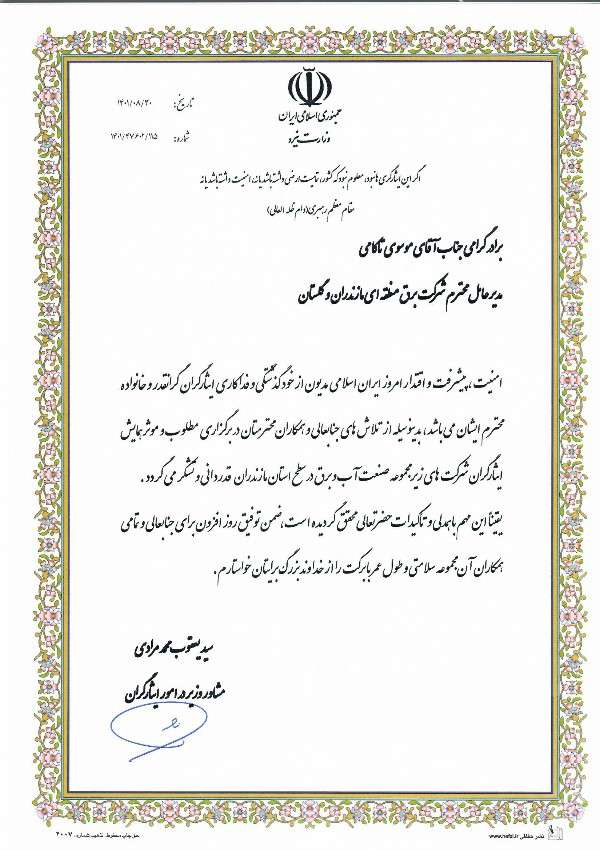 جمهوری اسلامی ایران
وزارت نیرو
تاریخ: ۱۴۰۱/۰۸/۳۰
شماره: ۱۴۰۱/۴۷۶۰۲/۱۱۵
اگر این ایثارگری ها نبود، معلوم نبود که کشور، تمامیت ارضی داشته باشد یا نه، امنیت داشته باشد یا نه
مقام معظم رهبری (دام ظله العالی)
برادر گرامی جناب آقای موسوی تاکامی
مدیر عامل محترم شرکت برق منطقه ای مازندران و گلستان
امنیت، پیشرفت و اقتدار امروز ایران اسلامی مدیون از خود گذشتگی و فداکاری ایثارگران گرانقدر و خانواده
محترم ایشان می باشد، بدینوسیله از تلاش های جنابعالی و همکاران محترمتان در برگزاری مطلوب و موثر همایش
ایثارگران شرکت های زیر مجموعه صنعت آب و برق در سطح استان مازندران قدردانی و تشکر می گردد.
یقیناً این مهم با همدلی و تاکیدات حضرتعالی محقق گردیده است، ضمن توفیق روز افزون برای جنابعالی و تمامی
همکاران آن مجموعه سلامتی و طول عمر با برکت را از خداوند بزرگ برایتان خواستارم.
سید یعقوب محمد مرادی
مشاور وزیر در امور ایثارگران
حق چاپ محفوظ. تذهیب شماره: ۴۰۰۷
نشر حفظی www.hefzi.ir